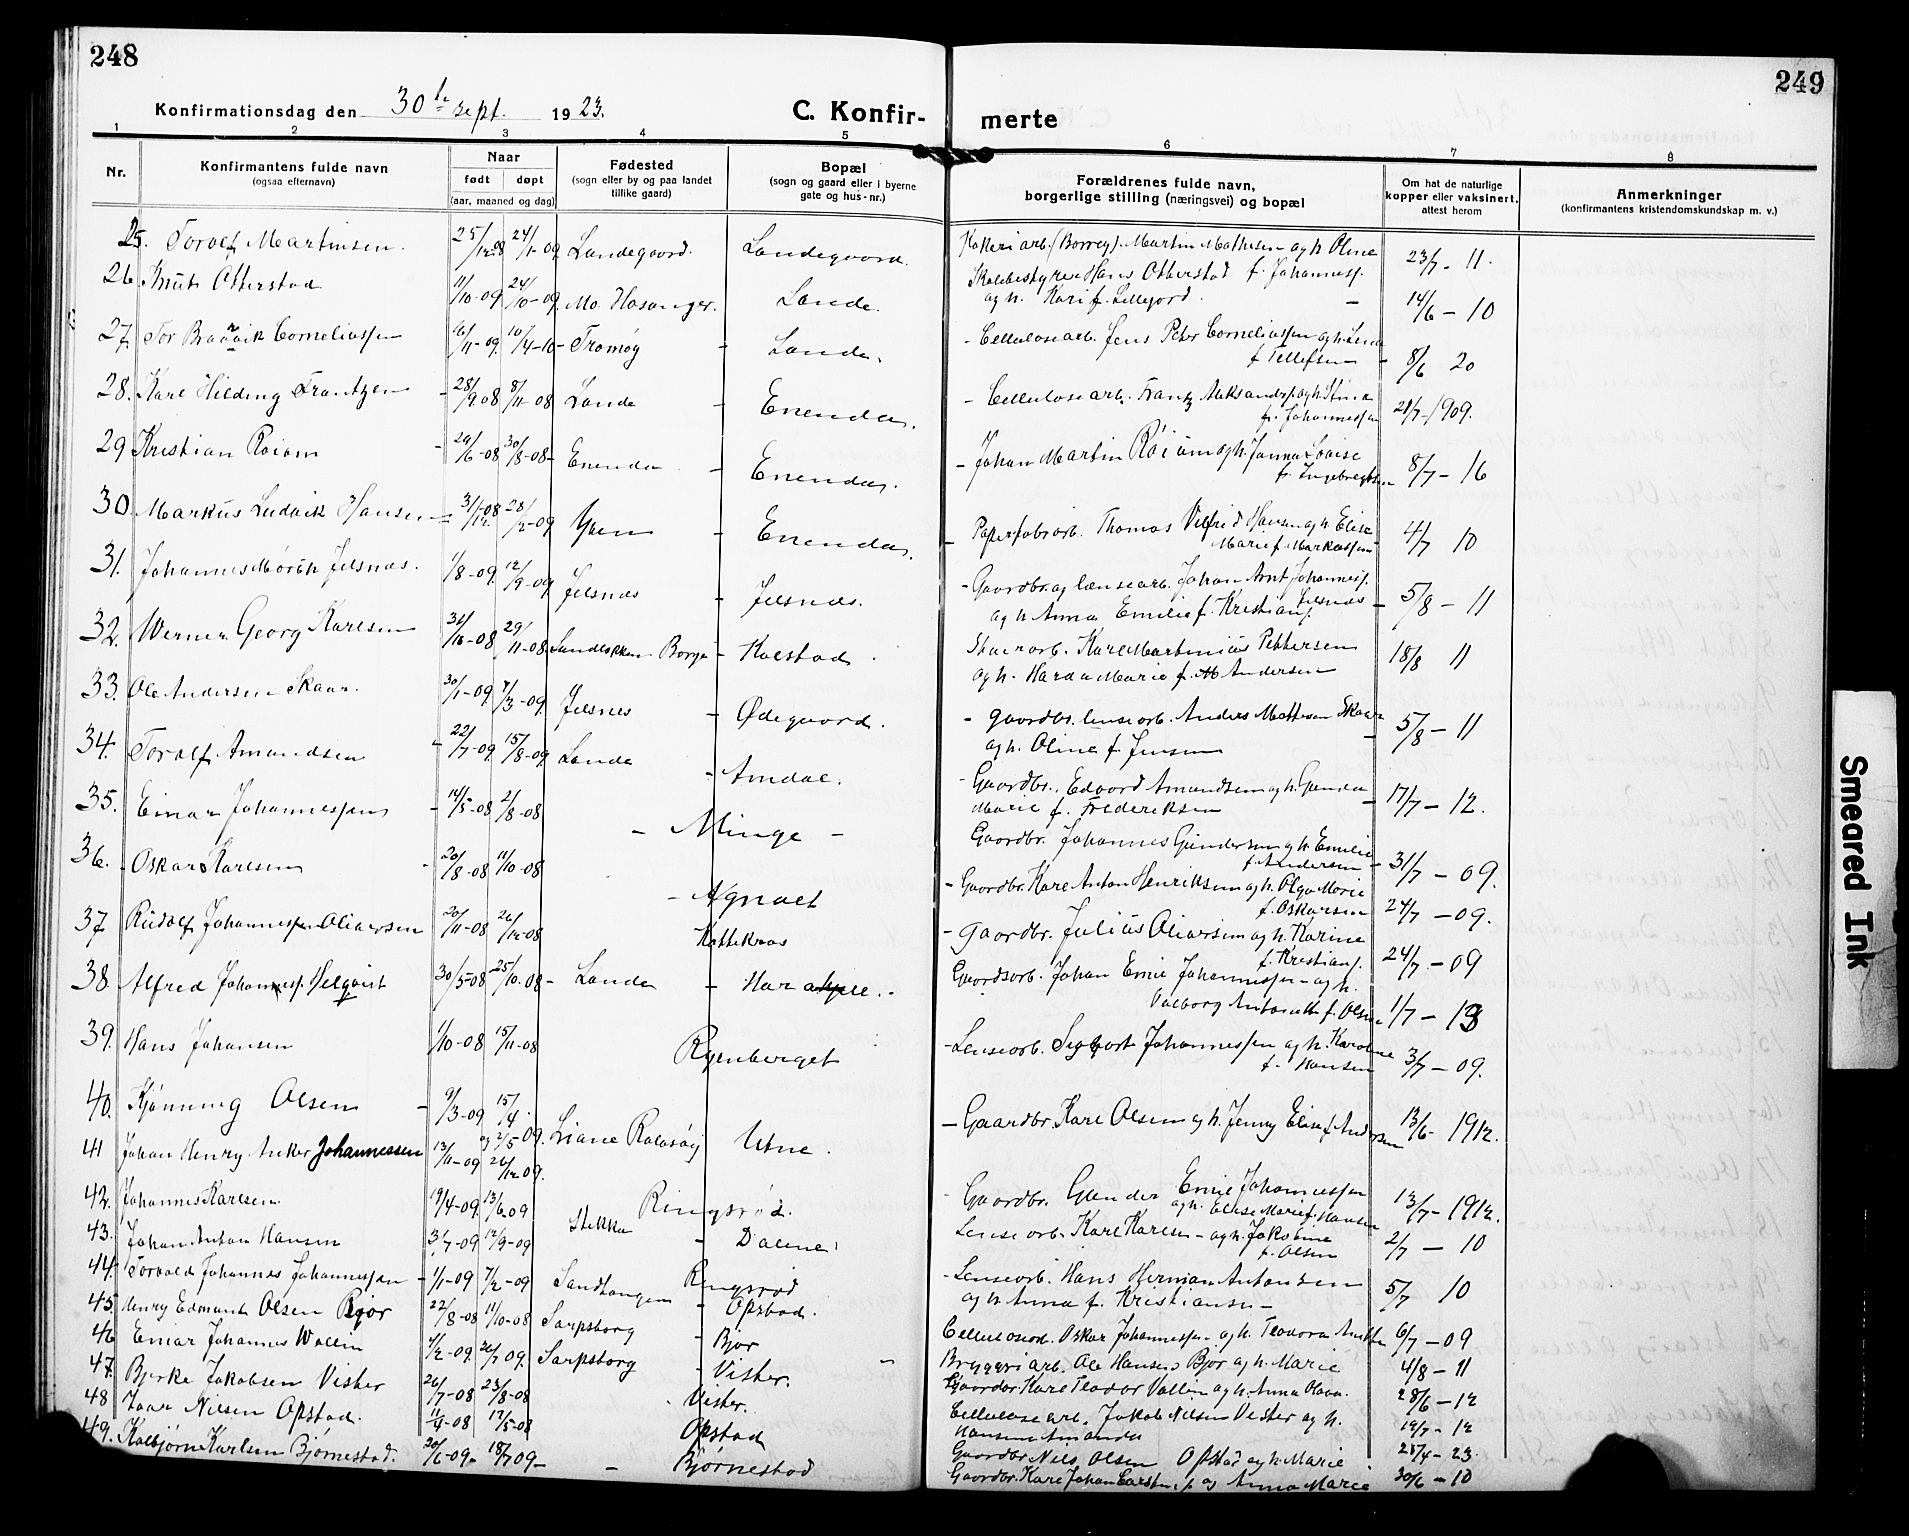 248
249
Konfirmationsdag den 30te sept. 1923.
C. Konfir-
merte
1 2 3 4 5 6 7 8
Nr.
Konfirmantens fulde navn
(ogsaa efternavn)
Naar
født døpt
(aar, maaned og dag)
Fødested
(sogn eller by og paa landet
tillike gaard)
Bopæl
(sogn og gaard eller i byerne
gate og hus-nr.)
Forældrenes fulde navn,
borgerlige stilling (næringsvei) og bopæl
Om hat de naturlige
kopper eller vaksinert,
attest herom
Anmerkninger
(konfirmantens kristendomskundskap m. v.)
25. Torolf Martinsen. 25/12-08 24/1-09 Landegaard. Landegaard. Martin Mathisen og h. Oline 23/7-11.
26. Knut Otterstad 11/10-09 24/10-09 Mo. Hosanger. Lande. Skolebestyrer Hans Otterstad f. Johannesf.
og h. Kari f. Lillejord. 14/6-10
27. Tor Corneliussen 6/11-09. 10/4-10- Tromøy - Lande. - Cellulosearb. Jens Peter Corneliussen og h. Lena
f. Tellefsen 8/6 20
28. Karl Hilding Frantzen 28/9-08 8/11-08 Lande - Enenda. - Cellulosearb. Frantz Aleksandersf. og h. Stina
f. Johannessen 21/7-1909.
29 Kristian Roiom 29/6-08 30/8-08- Enenda - Enenda. - Johan Martin Roiom og h. Janna Lovise
f. Ingebregtsen 8/7-16
30. Markus Ludvik Hansen 31/12-08 28/2-09 Yven - Enenda. - Papirfabarb. Thomas Vilfrid Hansen og h. Elise
Marie f. Markussen 4/7 10
31. Johannes Jelsnæs. 1/8-09. 12/9-09 Jelsnæs - Jelsnæs. - Gaardbr. og lensearb. Johan Arnt Johannesf.
Jelsnæs
og h. Anna Emilie f. Kristiansf. 5/8-11
32. Werner Georg Karlsen 31/10-08 29/11-08 Sandbakken Borge - Kolstad. Karl Martinius Pettersen
og h. Harda Marie f. Andersen 18/8 11
33. Ole Andersen Skaar. 30/1-09. 7/3-09. Jelsnes - Ødegaard. - Gaardbr. lensearb. Anders Mathisen Skaar
og h. Oline f. Jensen 5/8-11
34. Torolf Amundsen 22/7-09 15/8-09. Lande - Amdal. - Gaardbr. Edvard Amundsen og h. Gunda
Marie f. Frederiksen 17/7-12.
35. Einar Johannessen 14/5-08 2/8-08 - Minge - Gaardbr. Johannes Gundersen og h. Emilie
f. Andersen 31/7-09.
36. Oskar Karlsen 20/8-08 11/10-08 - Agnalt - Gaardbr. Karl Anton Henriksen og h. Olga Marie
f. Oskarsen 24/7-09.
37 Rudolf Johannessen Oliversen 20/11-08 26/12-08 Kattekraas - Gaardbr. Julius Oliversen og h. Karine
f. Kristiansf. 24/7-09
38 Alfred Johannesf. Helqvist 30/5-08 25/10-08- Lande - Gaardsarb. Johan Emil Johannessen og h.
Valborg Antonette f. Olsen 1/7-13
39. Hans Johansen 1/10-08 15/11-08 Ryenberget - Lensearb. Johannessen og h. Karoline
f. Hansen 3/7-09.
40. Kjønning Olsen 9/3-09 15/4 - Gaardbr. Karl Olsen og h. Jenny Elise f. Andersen 13/6-1912.
41 Johan Henry Anker Johannessen 13/11-09 26/12-09. Liane Rolvsøy Utne. Gaardbr. Emil Johannessen
og h. Elise Marie f. Hansen 13/7-1912.
42. Johannes Karlsen 19/4-09. 13/6-09 Ringsrød. Lensearb. Karl Karlsen - og h. Jakobine
f. Olsen 2/7-10
43. Johan Anton Hansen 3/7-09 12/9-09 Stikka - Dalene. - Lensearb. Hans Herman Antonsen
og h. Anna f. Kristiansen - 5/7 10
44. Torvald Johannes Johannessen 1/1-09 7/2-09 Sandtangen Ringsrød Cellulosearb. Oskar Johannessen og h. Teodora 6/7-09
45. Henry Edmund Olsen Bjor 22/8-08 11/10-08 Sarpsborg - Opstad. Bjor Bryggeriarb. Ole Hansen Bjor og h. Marie 4/8-11
46 Einar Johannes Wallin 4/2-09. 26/7 09. Sarpsborg - Vister. Gaardbr. Karl Teodor Vallin og h. Anna 28/6-12
47. Bjerke Jakobsen Vister 26/7-08 23/8-08 - Vister. Cellulosearb. Jakob Nilsen Vister og h.
Amanda 19/7-12
48 Ivar Nilsen Opstad. 11/4-08 17/5-08 Opstad Gaardbr. Nils Olsen Opstad og h. Marie 21/4-23.
49. Kolbjørn Karlsen Bjørnestad. 20/6-09. 18/7 09- - Bjørnestad Gaardbr. Karl Johan og Anna Marie 30/6-10
Smeared Ink